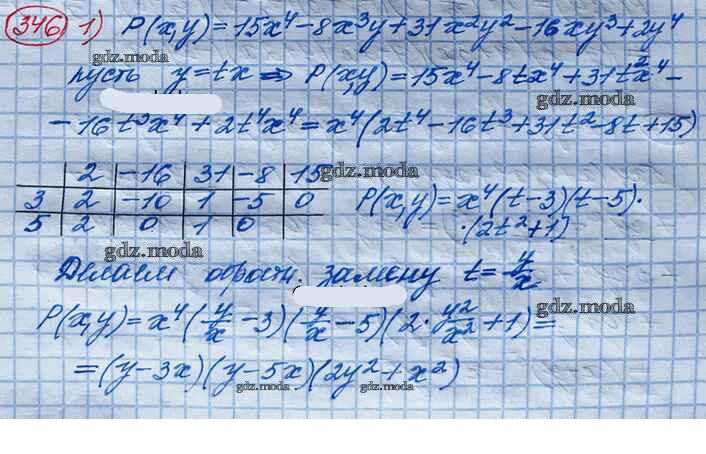 346 1) P(x,y)=15x⁴-8x³y+31x²y²-16xy³+2y⁴
пусть y=tx ⇒ P(x,y)=15x⁴-8tx⁴+31t²x⁴-
gdz.moda
-16t³x⁴+2t⁴x⁴=x⁴(2t⁴-16t³+31t²-8t+15)
2 -16 31 -8 15
gdz.moda
3 2 -10 1 -5 0 P(x,y)=x⁴(t-3)(t-5)·
5 2 0 1 0 ·(2t²+1)
gdz.moda
Делаем обратн. замену t=y/x
gdz.moda
P(x,y)=x⁴(y/x-3)(y/x-5)(2·y²/x²+1)=
=(y-3x)(y-5x)(2y²+x²)
gdz.moda gdz.moda